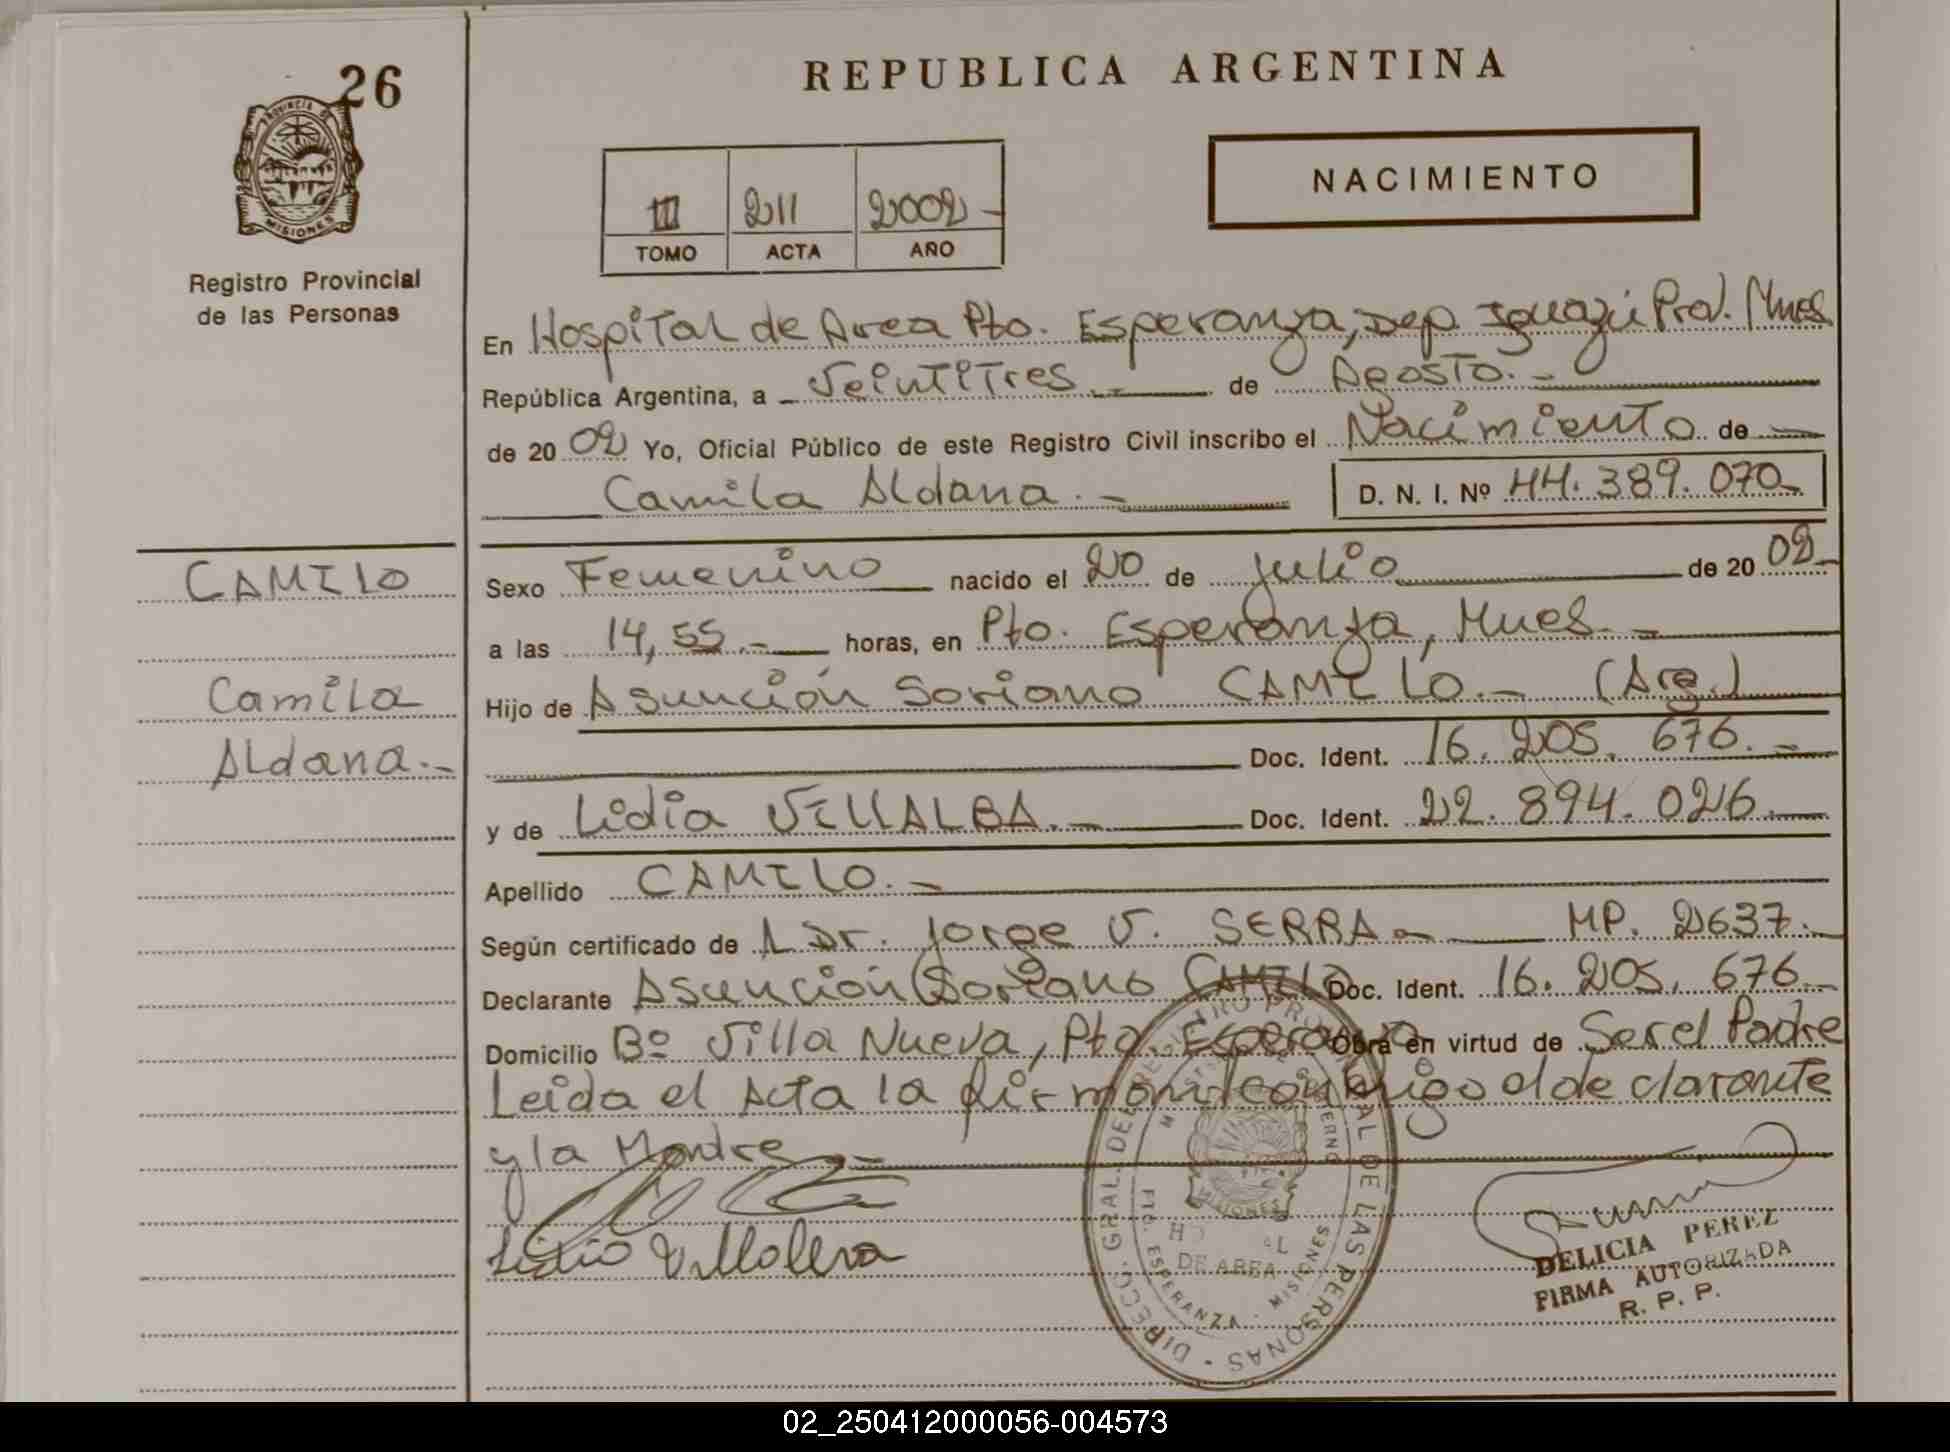 26
PROVINCIA DE
MISIONES
Registro Provincial
de las Personas
REPUBLICA ARGENTINA
III 211 2002 -
TOMO ACTA AÑO
NACIMIENTO
En Hospital de Area Pto. Esperanza, Dep. Iguazú Prov. Mnes
República Argentina, a Veintitres.- de Agosto.-
de 20 02 Yo, Oficial Público de este Registro Civil inscribo el Nacimiento de
Camila Aldana.- D. N. I. Nº 44.389.070-
CAMILO
Camila
Aldana.-
Sexo Femenino nacido el 20 de Julio de 20 02-
a las 14,55.- horas, en Pto. Esperanza, Mnes.-
Hijo de Asunción Soriano CAMILO.- (Arg.)
Doc. Ident. 16.205.676.-
y de Lidia VILLALBA.- Doc. Ident. 22.894.026.
Apellido CAMILO.-
Según certificado de Dr. Jorge V. SERRA.- MP. 2637.-
Declarante Asunción Soriano CAMILO Doc. Ident. 16.205.676.-
Domicilio Bº Villa Nueva, Pto. Esperanza Obra en virtud de Ser el Padre
Leida el Acta la firman conmigo el declarante
y la Madre.-
DIRECC. GRAL. DEL REGISTRO PROVINCIAL DE LAS PERSONAS
MINISTERIO DE GOBIERNO
MISIONES
DE AREA
PTO. ESPERANZA - MISIONES
DELICIA PEREZ
FIRMA AUTORIZADA
R. P. P.
02_250412000056-004573